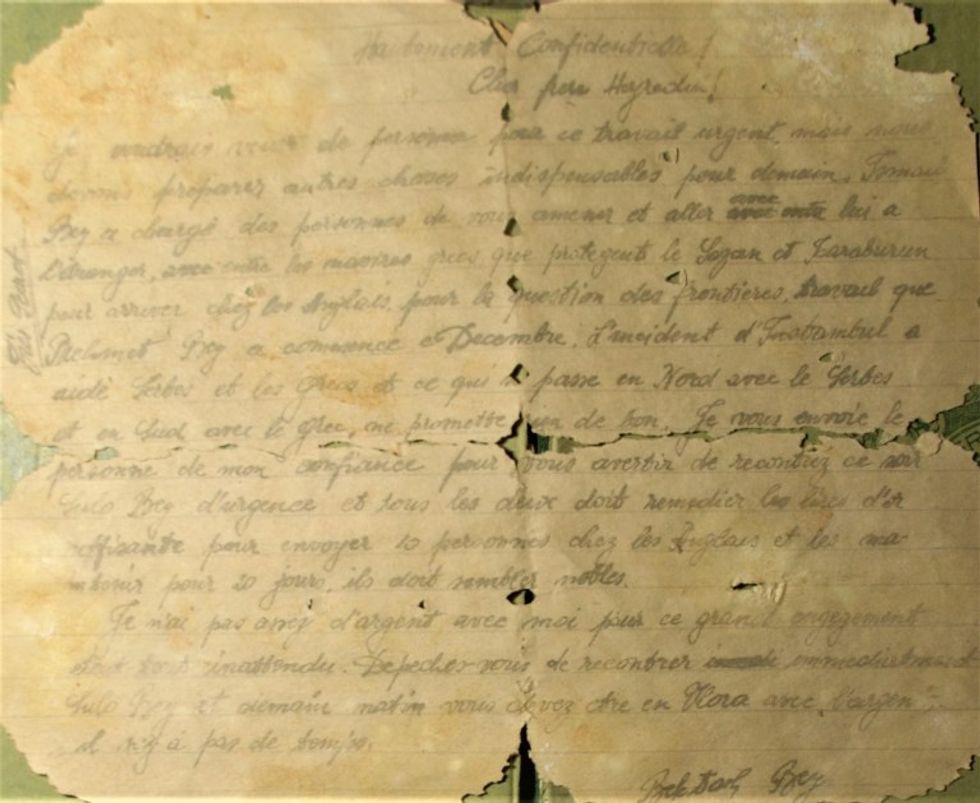 Hautement Confidentielle !
Cher frère Hayredin!
Je voudrais venir de personne pour ce travail urgent, mais nous
devons preparer autres choses indispensables pour demain. Ismail
Bey a chargé des personnes de vous amener et aller avec lui a
l'étranger, avec entre les navires grecs que protegent le Sazan et Karaburun
pour arriver chez les Anglais, pour la question des frontieres, travail que
Mehmet Bey a commence e Decembre. L'incident d'Instambul a
aidé Serbes et les Grecs et ce qui passe en Nord avec le Serbes
et en Sud avec le Grec, ne promette rien de bon. Je vous envoie le
personne de mon confiance pour vous avertir de recontrez ce soir
Sulo Bey d'urgence et tous les deux doit remedier les lires d'or
suffizante pour envoyer 10 personnes chez les Anglais et les ma-
intenir pour 20 jours, ils doit sembler nobles.
Je n'ai pas assez d'argent avec moi pour ce grand engegement
tout inattendu. Depeches-vous de recontrer immediatmende
Sulo Bey et demain matin vous devez etre en Vlora avec l'argent
il n'y a pas de temps.
Bektash Bey